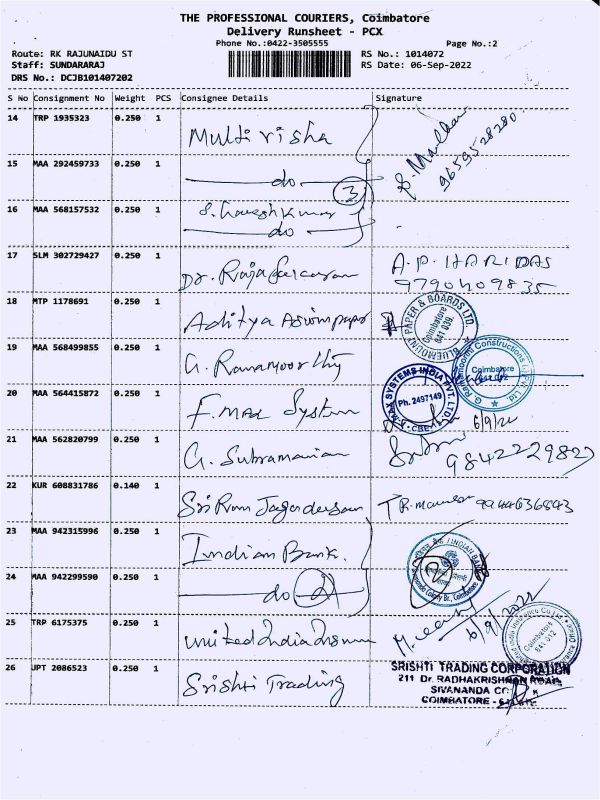 THE PROFESSIONAL COURIERS, Coimbatore
Delivery Runsheet - PCX
Phone No.:0422-3505555
Page No.:2
Route: RK RAJUNAIDU ST
RS No.: 1014072
Staff: SUNDARARAJ
RS Date: 06-Sep-2022
DRS No.: DCJB101407202
S No Consignment No Weight PCS Consignee Details Signature
14 TRP 1935323 0.250 1 Multi visha
9659528280
15 MAA 292459733 0.250 1 do
3
16 MAA 568157532 0.250 1
do
17 SLM 302729427 0.250 1 Dr. A.P. HARIDAS
9790409835
18 MTP 1178691 0.250 1 Aditya
BLUEMOUNT PAPER & BOARDS LTD.
Coimbatore
641 039.
19 MAA 568499855 0.250 1 G. Ramamoorthy
Constructions
Coimbatore
641 012
20 MAA 564415872 0.250 1 F. max System
MAX SYSTEMS INDIA PVT. LTD.
Ph. 2497149
6/9/22
21 MAA 562820799 0.250 1 G. Subramanian
9842229827
22 KUR 608831786 0.140 1 Sri Ram
23 MAA 942315996 0.250 1 Indian Bank.
INDIAN BANK
24 MAA 942299590 0.250 1 do 2
2
25 TRP 6175375 0.250 1 United India
6/9/2022
Coimbatore
641 012
26 JPT 2086523 0.250 1 Srishti Trading
SRISHTI TRADING CORPORATION
211 Dr. RADHAKRISHNAN ROAD
SIVANANDA
COIMBATORE -